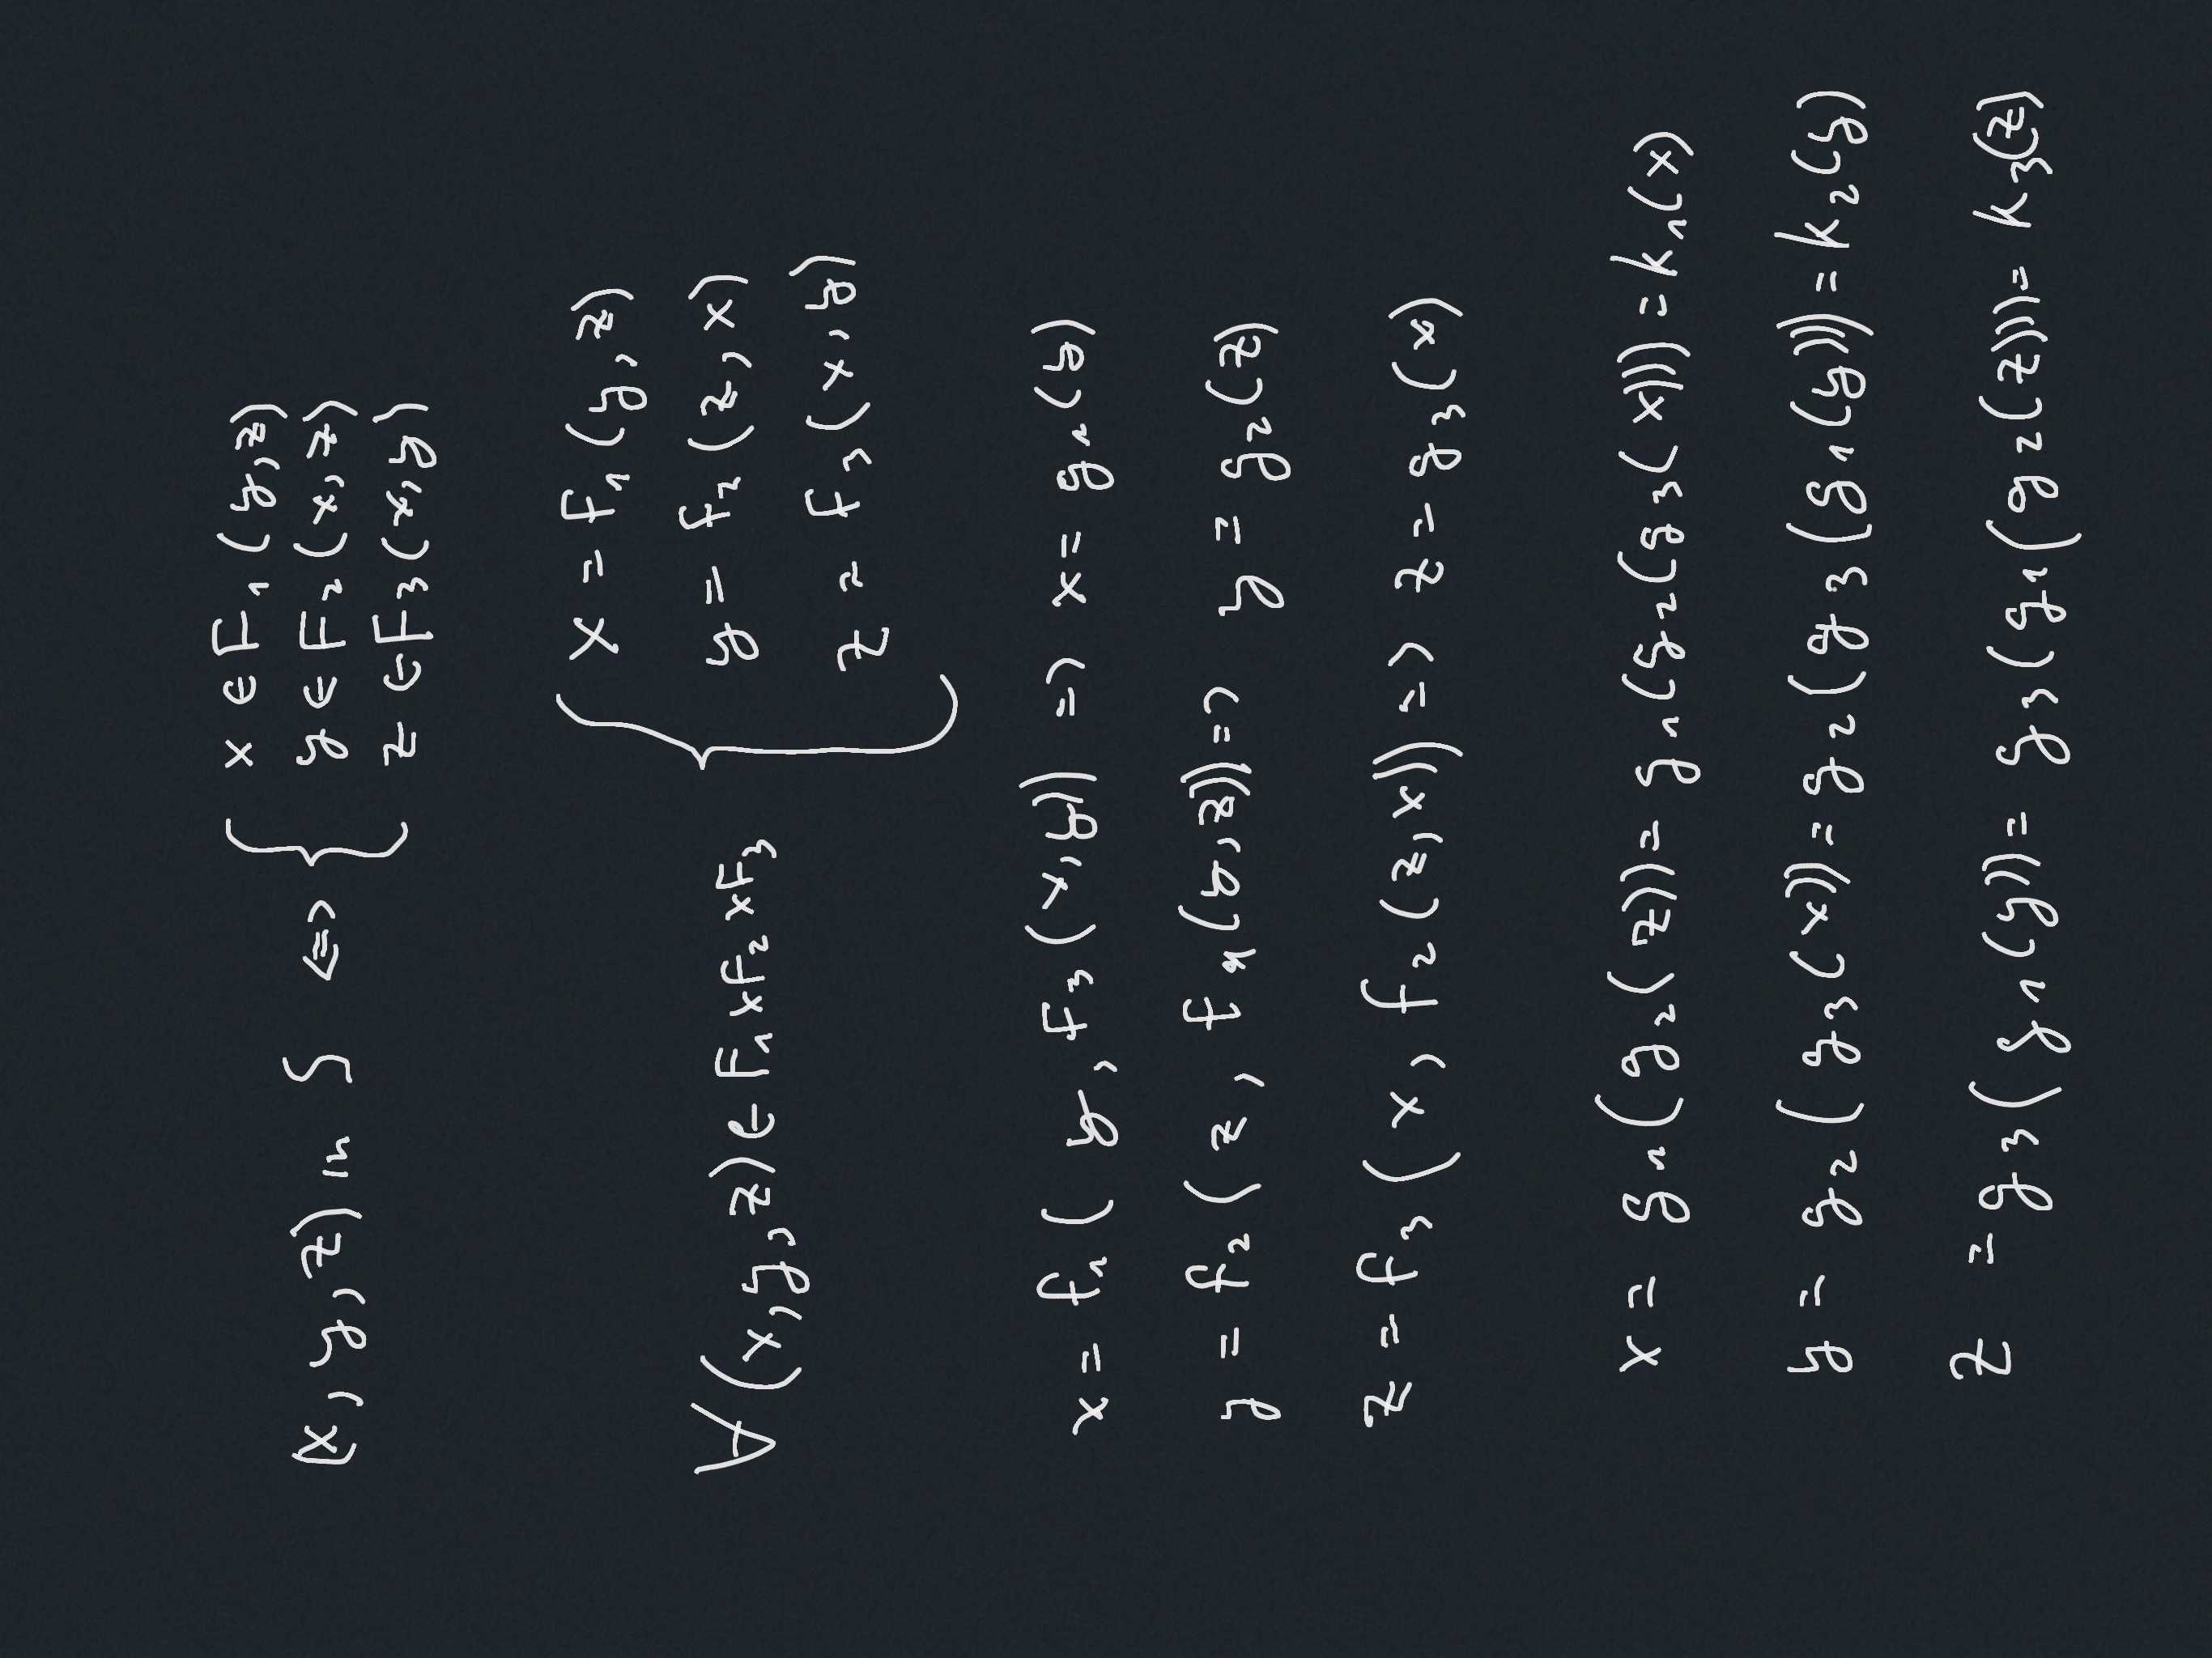 (x, y, z) in S <=> { x ∈ F₁(y, z)
y ∈ F₂(x, z)
z ∈ F₃(x, y)
∀(x, y, z) ∈ F₁ x F₂ x F₃ { x = f₁(y, z)
y = f₂(z, x)
z = f₃(x, y)
x = f₁(y, f₃(x, y)) => x = g₁(y)
y = f₂(z, f₁(y, z)) => y = g₂(z)
z = f₃(x, f₂(z, x)) => z = g₃(x)
x = g₁(g₂(z)) = g₁(g₂(g₃(x))) = k₁(x)
y = g₂(g₃(x)) = g₂(g₃(g₁(y))) = k₂(y)
z = g₃(g₁(y)) = g₃(g₁(g₂(z))) = k₃(z)